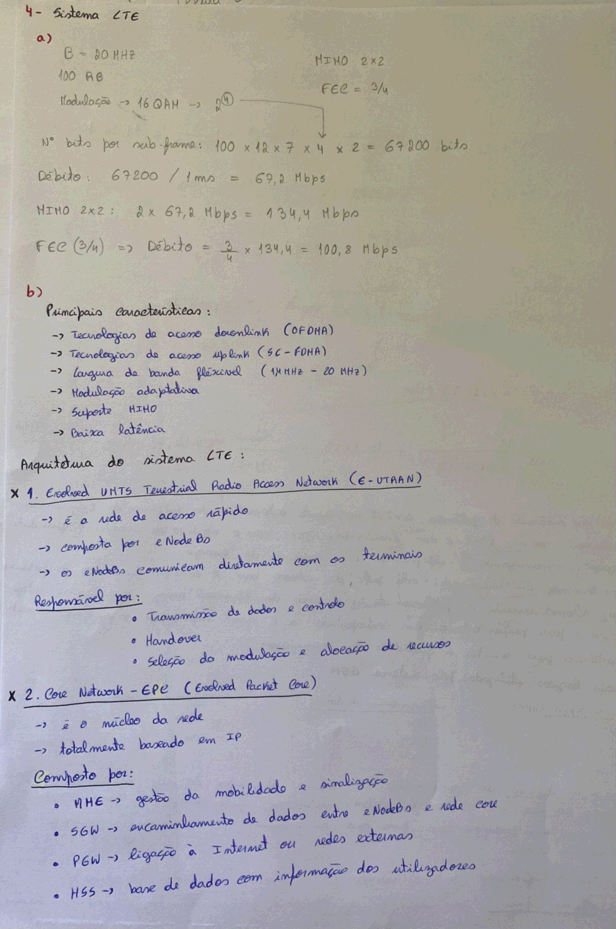 4- Sistema LTE
a)
B = 20 MHz
MIMO 2x2
100 RB
FEC = 3/4
Modulação → 16 QAM → 2^4
Nº bits por sub-frame: 100 x 12 x 7 x 4 x 2 = 67200 bits
Débito: 67200 / 1ms = 67,2 Mbps
MIMO 2x2: 2 x 67,2 Mbps = 134,4 Mbps
FEC (3/4) => Débito = 3/4 x 134,4 = 100,8 Mbps
b)
Principais características:
→ Tecnologias de acesso downlink (OFDMA)
→ Tecnologias de acesso uplink (SC-FDMA)
→ Largura de banda fléxivel (1,4 MHz - 20 MHz)
→ Modulação adaptativa
→ Suporte MIMO
→ Baixa latência
Arquitetura do sistema LTE:
x 1. Evolved UMTS Terrestrial Radio Access Network (E-UTRAN)
→ é a rede de acesso rápido
→ composta por eNodeBs
→ os eNodeBs comunicam diretamente com os terminais
Responsável por:
• Transmissão de dados e controlo
• Handover
• Seleção da modulação e alocação de recursos
x 2. Core Network - EPC (Evolved Packet Core)
→ é o núcleo da rede
→ totalmente baseado em IP
Composto por:
• MME → gestão da mobilidade e sinalização
• SGW → encaminhamento de dados entre eNodeBs e rede core
• PGW → ligação à Internet ou redes externas
• HSS → base de dados com informação dos utilizadores